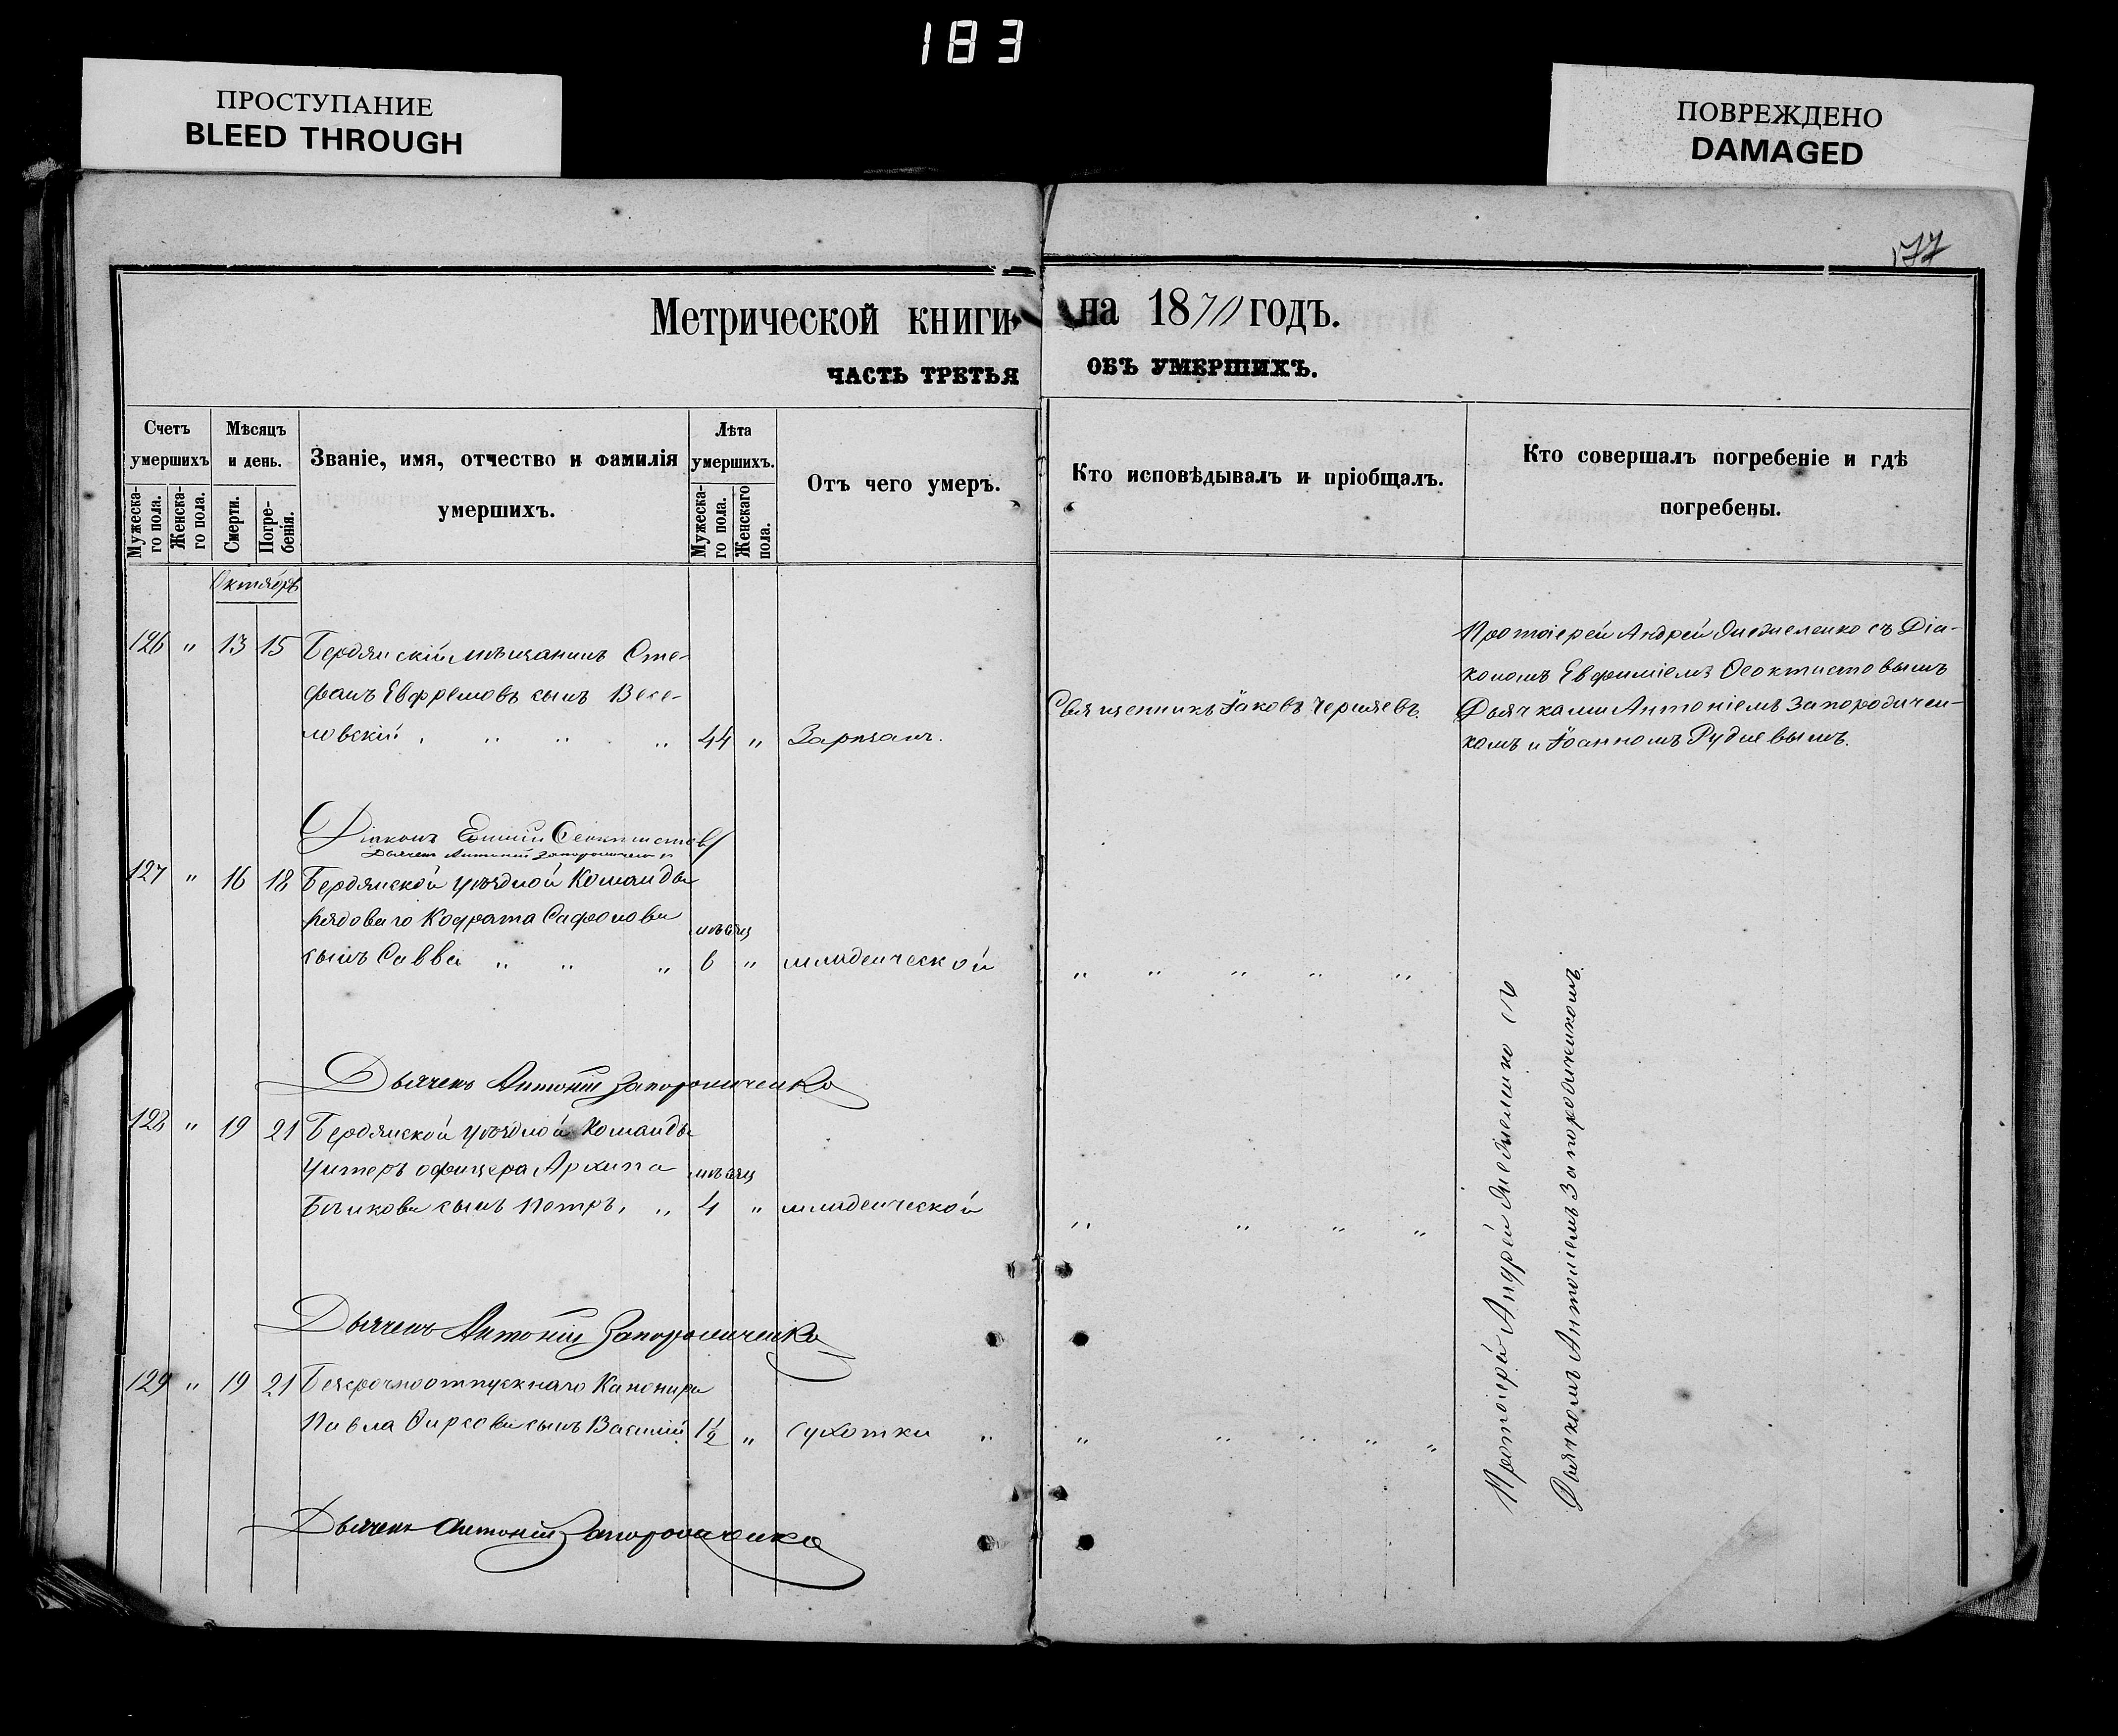 183
ПРОСТУПАНИЕ
BLEED THROUGH
ПОВРЕЖДЕНО
DAMAGED
177
Метрической книги на 1870 годъ.
ЧАСТЬ ТРЕТЬЯ ОБЪ УМЕРШИХЪ.
Счетъ умершихъ
Мужеска-
го пола.
Женска-
го пола.
Мѣсяцъ и день.
Смерти.
Погре-
бенія.
Званіе, имя, отчество и фамилія
умершихъ.
Лѣта умершихъ.
Мужеска-
го пола.
Женскаго
пола.
Отъ чего умеръ.
Кто исповѣдывалъ и пріобщалъ.
Кто совершалъ погребеніе и гдѣ
погребены.
Октябрь
126 " 13 15 Бердянскій мѣщанинъ Сте-
фанъ Евфремовъ сынъ Весе-
ловскій 44 " Зарѣзанъ.
Священникъ Іаковъ Черняевъ.
Протоіерей Андрей съ Діа-
кономъ Евфиміемъ Ѳеоктистовымъ
Дьячками Антоніемъ Запорожчен-
комъ и Іоанномъ Рудневымъ.
Діаконъ Ѳеоктистовъ
Дьячекъ Антоній Запорожченко
127 " 16 18 Бердянской уѣздной Команды
рядоваго Кодрата Сафонова
сынъ Савва " " " мѣсяц 6 " младенческой " " " " "
Дьячекъ Антоній Запорожченко
128 " 19 21 Бердянской уѣздной Команды
Унтеръ офицера Архипа
сынъ Петръ, " мѣсяц 4 " младенческой " " " "
Дьячекъ Антоній Запорожченко
129 " 19 21 Безсрочноотпускнаго Канонира
Павла сынъ Василій 1½ " Сухотки " " " " " "
Дьячекъ Антоній Запорожченко
Протоіерей Андрей съ
Дьячкомъ Антоніемъ Запорожченкомъ.